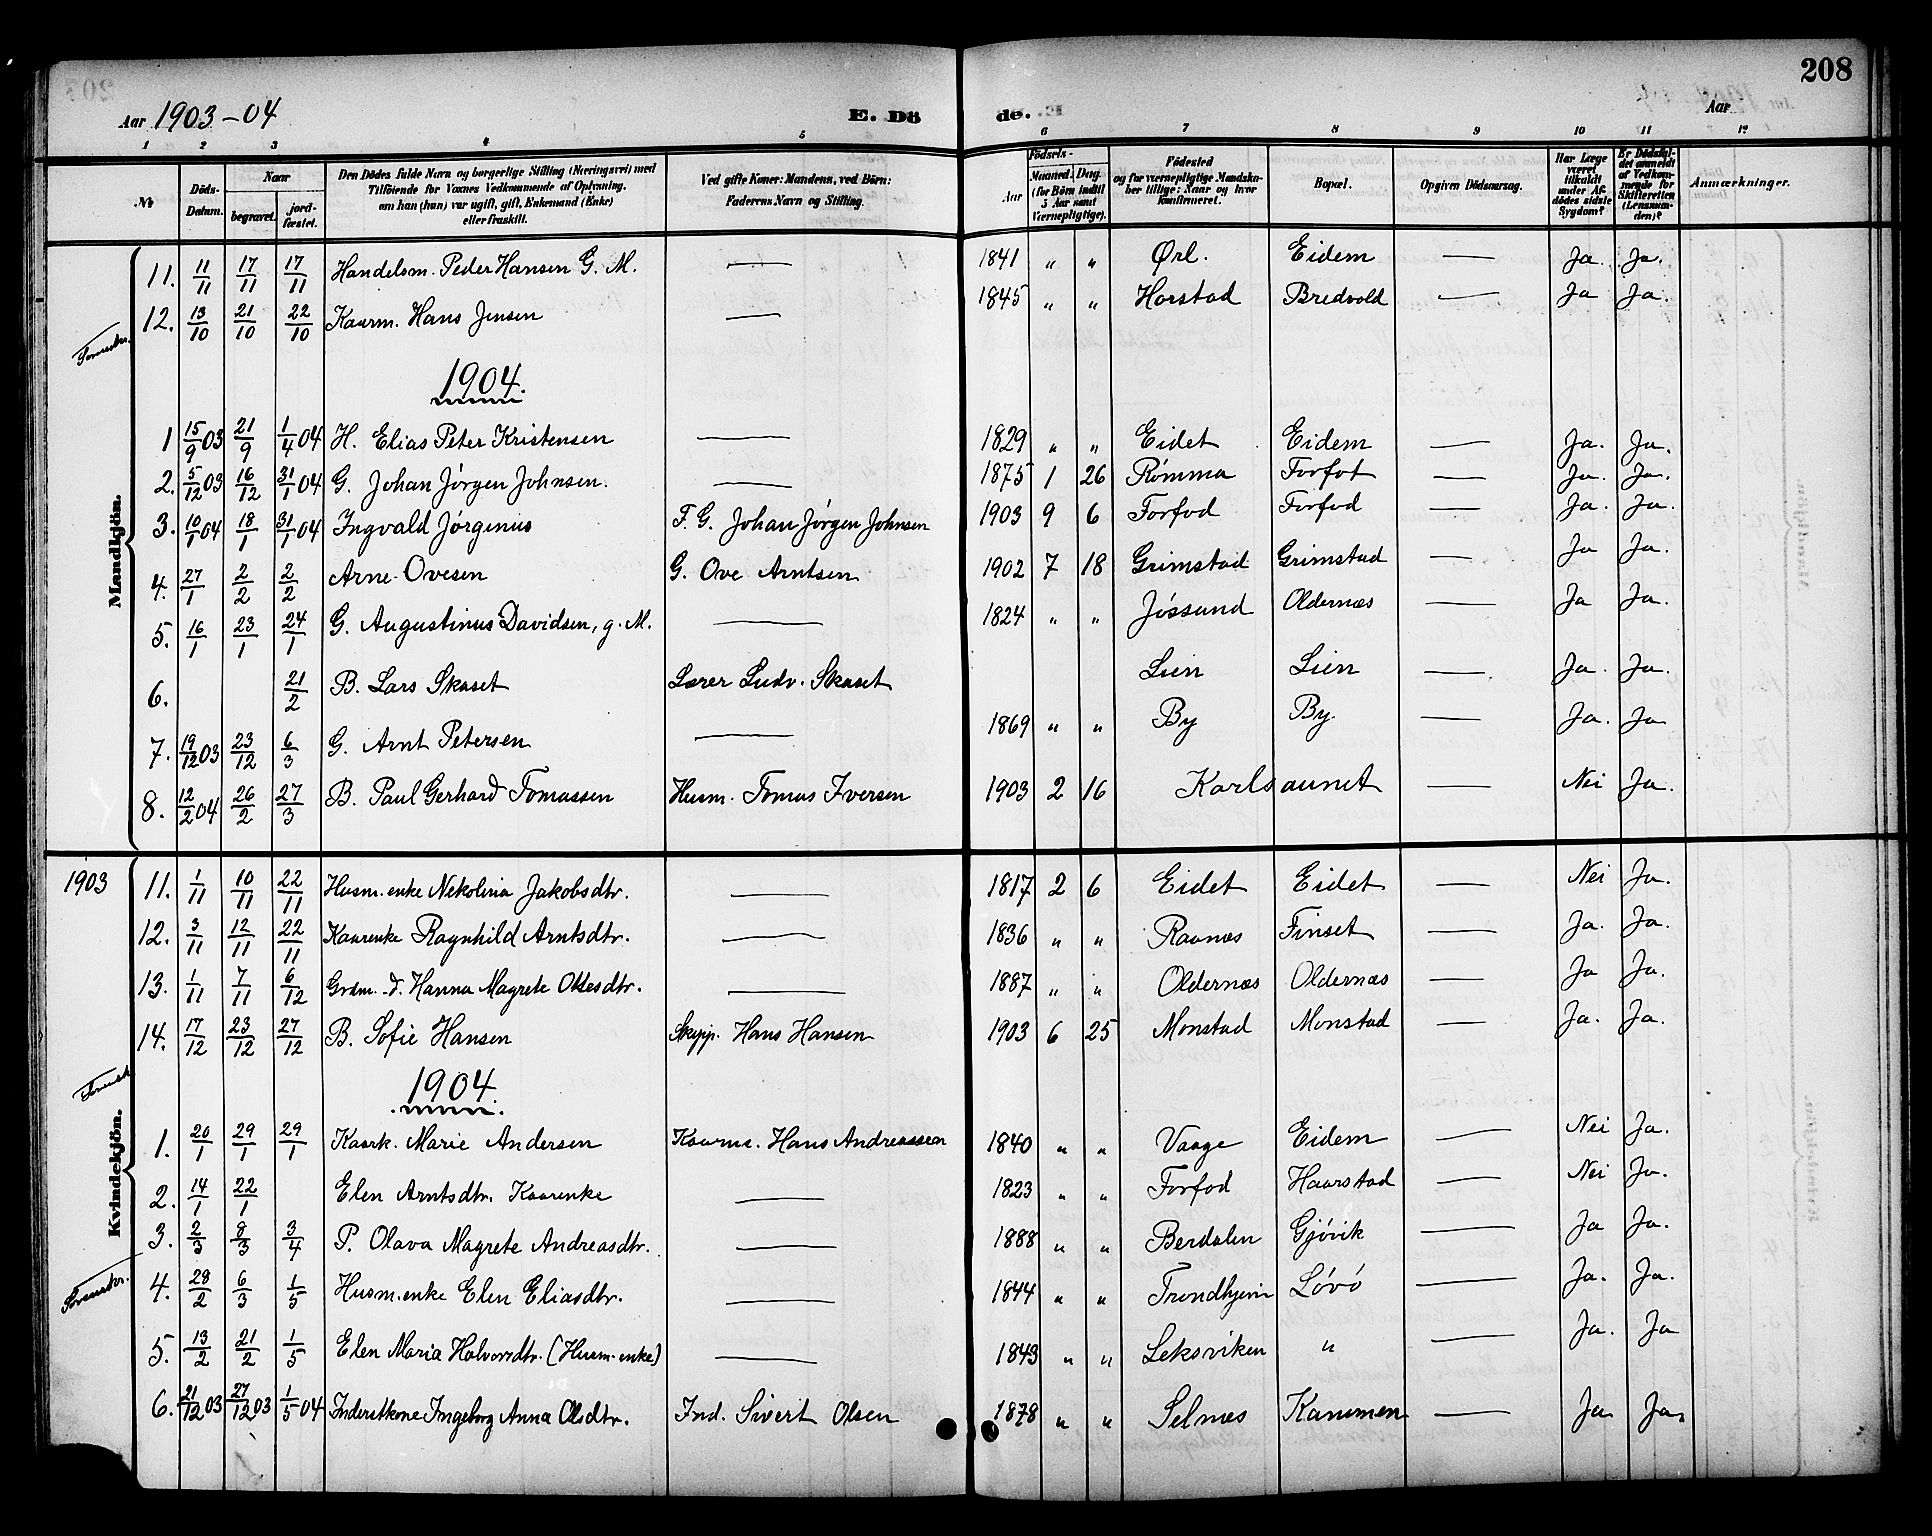 208
Aar 1903-04 E. Døde. Aar
1 2 3 4 5 6 7 8 9 10 11 12
No Döds-Datum. Naar begravet. jordfæstet. Den Dödes fulde Navn og borgerlige Stilling (Næringsvei) med Tilföiende for Voxnes Vedkommende af Oplysning, om han (hun) var ugift, gift, Enkemand (Enke) eller fraskilt. Ved gifte Koner: Mandens, ved Börn: Faderens Navn og Stilling. Födsels- Aar Maaned. Dag. (for Börn indtil 5 Aar samt Værnepligtige). Födested og for værnepligtige Mandskaber tillige: Naar og hvor konfirmeret. Bopæl. Opgiven Dödsaarsag. Har Læge været tilkaldt under Afdödes sidste Sygdom? Er Dödsfaldet anmeldt af Vedkommende for Skifteretten (Lensmanden)? Anmærkninger.
Mandkjön.
11. 11/11 17/11 17/11 Handelsm. Peder Hansen G. M. — 1841 " " Ørl. Eidem — Ja. Ja.
12. 13/10 21/10 22/10 Kaarm. Hans Jensen — 1845 " " Horstad Bredvold — Ja Ja.
1904.
1 15/9 03 21/9 1/4 04 H. Elias Peter Kristensen — 1829 " " Eidet Eidem — Ja. Ja.
2. 5/12 03 16/12 31/1 04 G. Johan Jörgen Johnsen. — 1875 1 26 Römma Forfot — Ja. Ja.
3. 10/1 04 18/1 31/1 04 Ingvald Jörginus F. G. Johan Jörgen Johnsen 1903 9 6 Forfod Forfod — Ja. Ja.
4. 27/1 2/2 2/2 Arne Ovesen G. Ove Arntsen 1902 7 18 Grimstad Grimstad — Ja Ja.
5. 16/1 23/1 24/1 G. Augustinus Davidsen, g. M. — 1824 " " Jössund Oldernæs — Ja Ja.
6. 21/2 B. Lars Skaset Lærer Ludv. Skaset Lien Lien — Ja. Ja.
7. 19/12 03 23/12 6/3 G. Arnt Petersen — 1869 " " By By. — Ja. Ja
8. 12/2 04 26/2 27/3 B. Paul Gerhard Tomassen Husm. Tomas Iversen 1903 2 16 Karlsaunet — Nei Ja.
Kvindekjön.
1903 11. 1/11 10/11 22/11 Husm. enke Nekolina Jakobsdtr. — 1817 2 6 Eidet Eidet — Nei Ja.
12. 3/11 12/11 22/11 Kaarenke Ragnhild Arntsdtr. — 1836 " " Raanæs Finset — Ja. Ja.
13. 1/11 7/11 6/12 Grdm. d. Hanna Magrete Ottesdtr. — 1887 " " Oldernæs Oldernæs — Ja Ja.
14. 17/12 23/12 27/12 B. Sofie Hansen Skipp. Hans Hansen 1903 6 25 Monstad Monstad — Ja. Ja.
1904.
1. 20/1 29/1 29/1 Kaark. Marie Andersen Kaarm. Hans Andreassen 1840 " " Vaage Eidem — Nei Ja.
2. 14/1 22/1 Elen Arntsdtr. Kaarenke — 1823 " " Forfod Haarstad — Nei Ja.
3. 2/3 8/3 3/4 P. Olava Magrete Andreasdtr. — 1888 " " Berdalen Gjövik — Ja Ja.
4. 28/2 6/3 1/5 Husm. enke Elen Eliasdtr. — 1844 " " Trondhjem Lövö — Ja. Ja.
5. 13/2 21/2 1/5 Elen Maria Halvorsdtr. (Husm. enke) — 1843 " " Leksviken " — Ja. Ja
6. 21/12 03 27/12 03 1/5 04 Inderstkone Ingeborg Anna Olsdtr. Ind. Sivert Olsen 1878 " " Selnæs — Ja Ja.